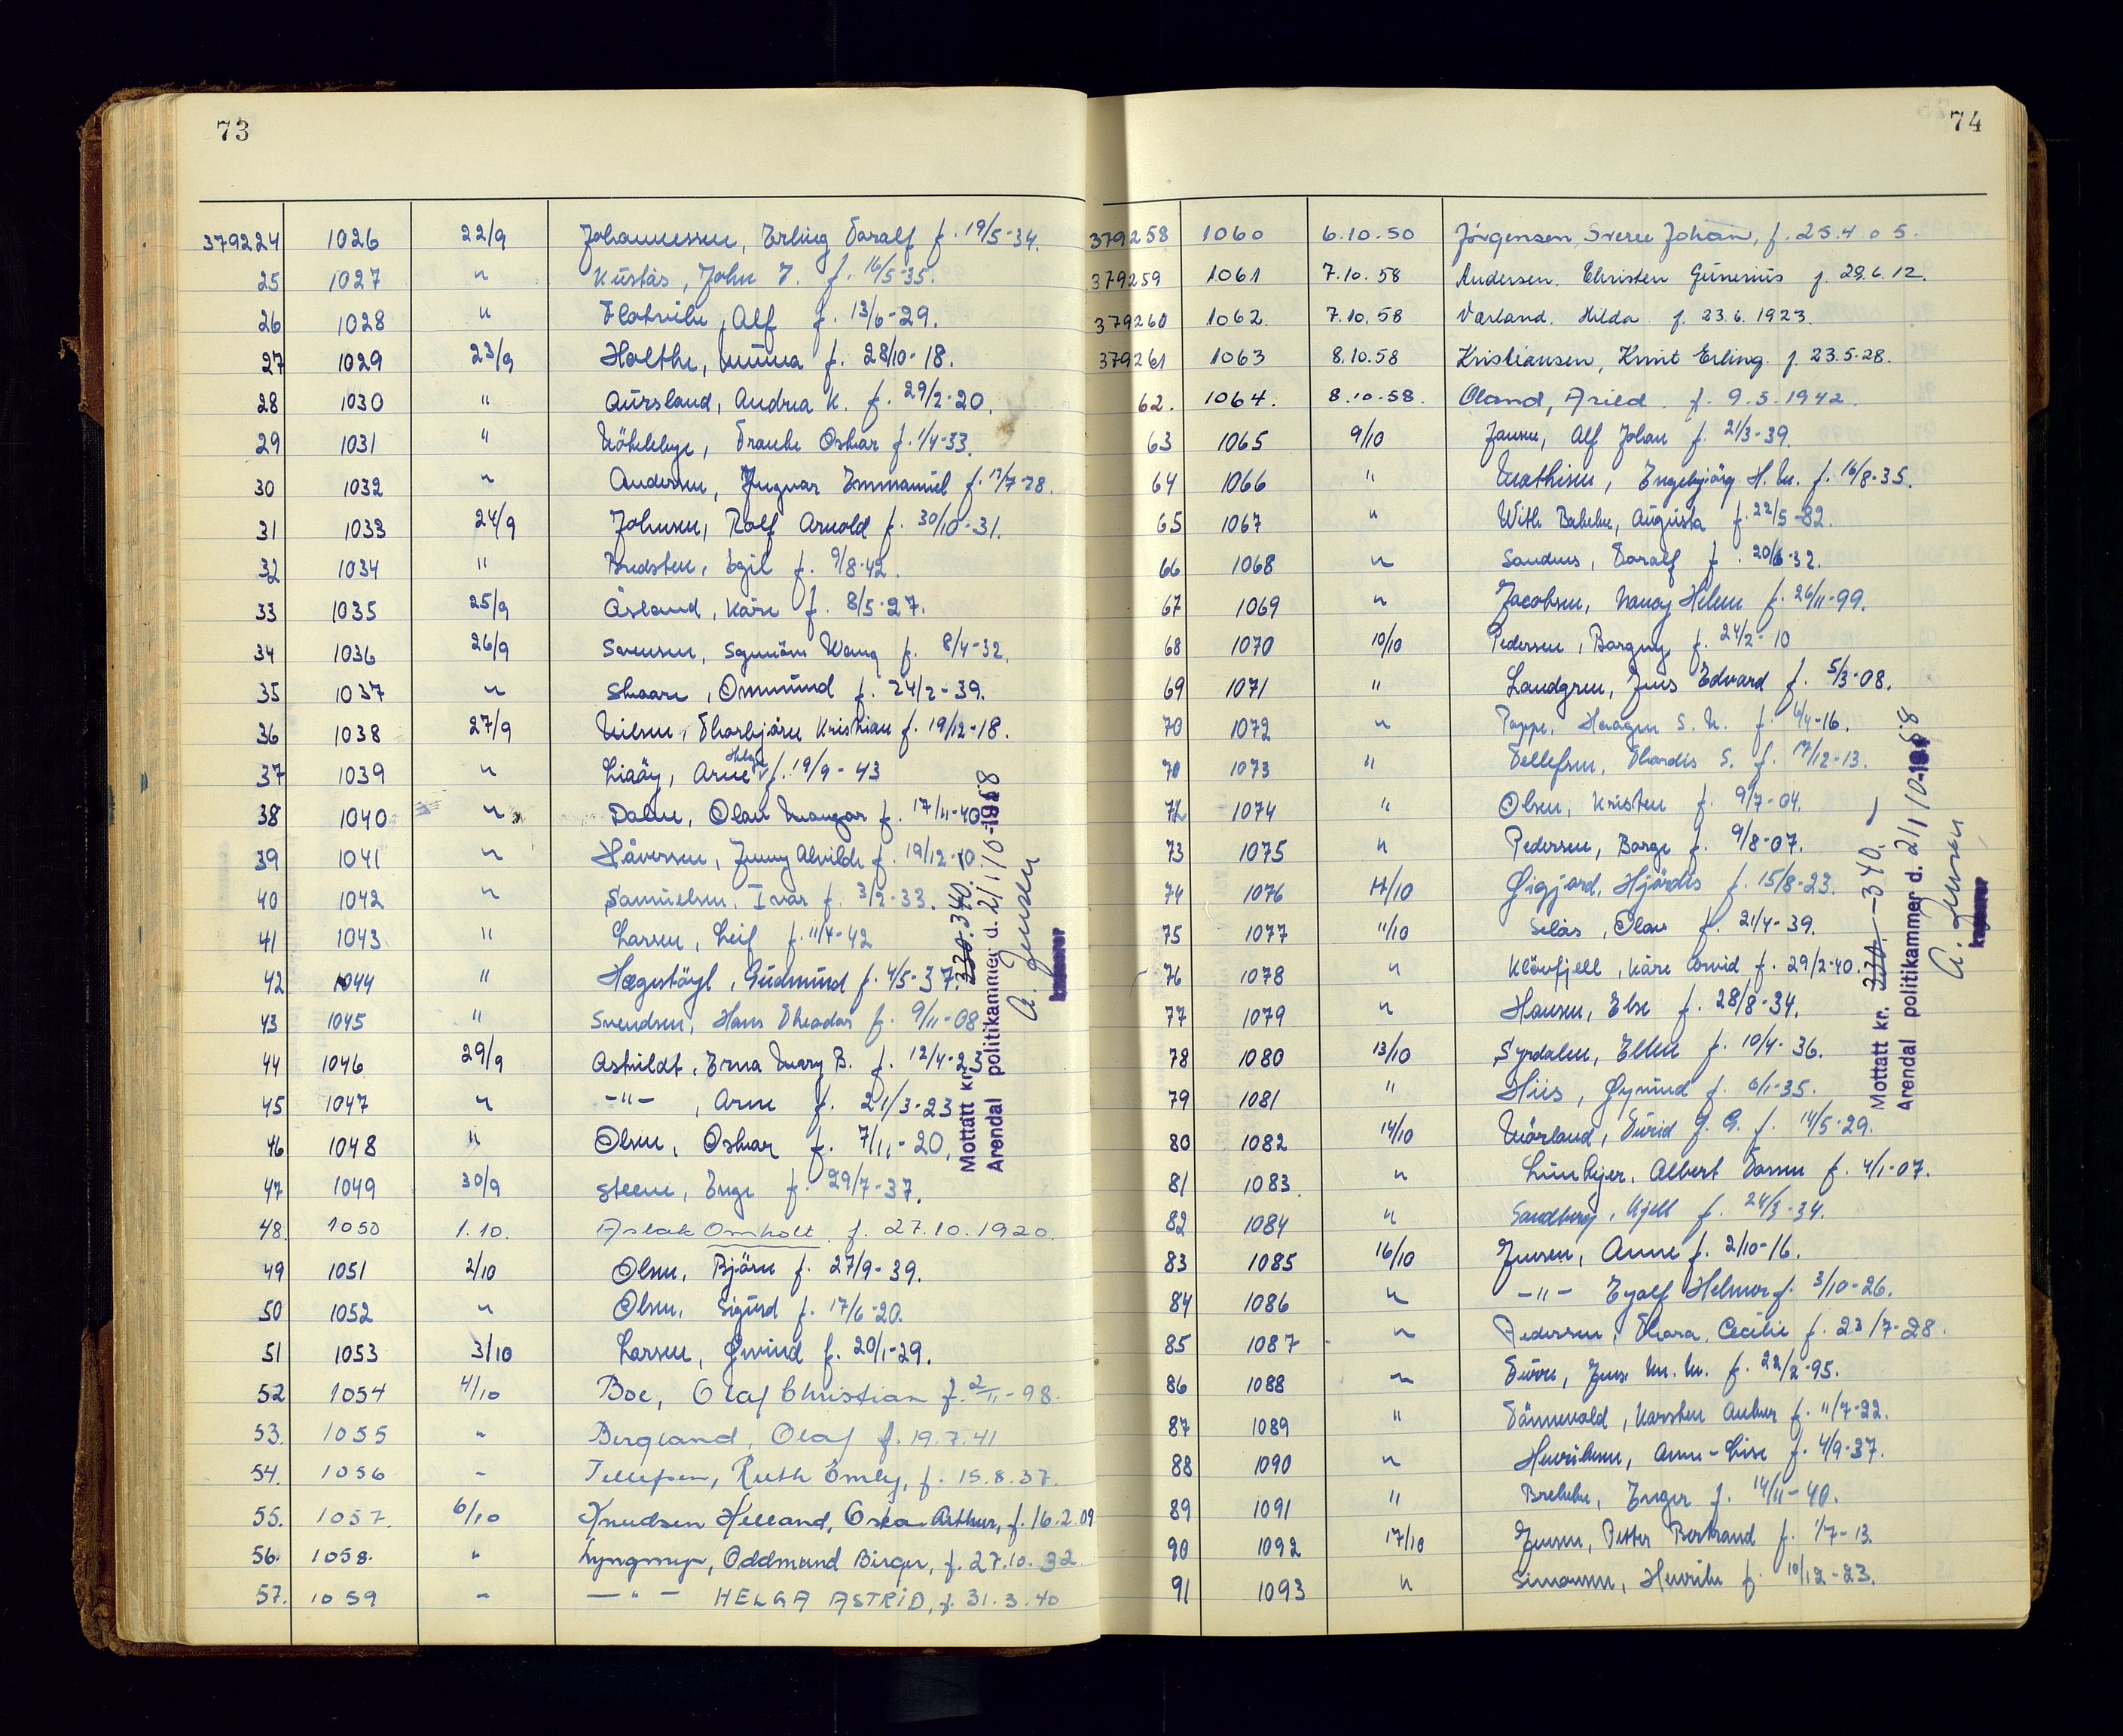 73
379224 1026 22/9 Johannessen, Erling Toralf f. 19/5-34.
25 1027 " Kustås, John J. f. 16/5-35.
26 1028 " Flatvike, Alf f. 13/6-29.
27 1029 23/9 Holthe, f. 28/10-18.
28 1030 " Aursland, Andrea K. f. 29/2-20.
29 1031 " Oskar f. 1/4-33.
30 1032 " Andersen, Ingvar Emmanuel f. 17/7-28.
31 1033 24/9 Johnsen, Rolf Arnold f. 30/10-31.
32 1034 " Bredsten, Egil f. 9/8-42.
33 1035 25/9 Åsland, Kåre f. 8/5-27.
34 1036 26/9 Svensen, Wang f. 8/4-32.
35 1037 " Skaare, Ommund f. 24/2-39.
36 1038 27/9 Nilsen, Thorbjörn Kristian f. 19/12-18.
37 1039 " Liaöy, Arne Helge f. 19/9-43
38 1040 " Dalen, Olav Magnar f. 17/11-40
39 1041 " Håversen, Jenny Alvilde f. 19/12-10.
40 1042 " Samuelsen, Ivar f. 3/2-33.
41 1043 " Larsen, Leif f. 11/4-42
42 1044 " Hægestöyl, Gudmund f. 4/5-37.
43 1045 " Svendsen, Hans Theodor f. 9/11-08
44 1046 29/9 Askildt, Erna Mary B. f. 12/4-23
45 1047 " -"- , Arne f. 21/3-23
46 1048 " Olsen, Oskar f. 7/11-20,
47 1049 30/9 Steene, Inge f. 29/7-37.
48. 1050 1.10. Aslak Omholt. f. 27.10.1920.
49 1051 2/10 Olsen, Björn f. 27/9-39.
50 1052 " Olsen, Sigurd f. 17/6-20.
51 1053 3/10 Larsen, Øivind f. 20/1-29.
52 1054 4/10 Boe, Olaf Christian f. 2/11-98.
53. 1055 " Bergland, Olaf f. 19.7.41
54. 1056 - Tellefsen, Ruth Emly, f. 15.8.37.
55. 1057. 6/10 Knudsen Helland, Oskar Arthur, f. 16.2.09
56. 1058. " Lyngmyr, Oddmund Birger, f. 27.10.32
57. 1059 - -"- HELGA ASTRID, f. 31.3.40
Mottatt kr. 330.- 340.-
Arendal politikammer d. 2/10-1958
A. Jensen
kasserer
74
379258 1060 6.10.50 Jörgensen, Sverre Johan, f. 25.4.05.
379259 1061 7.10.58 Andersen. Christen Gunerius f. 29.6.12.
379260 1062. 7.10.58 Varland. Hilda f. 23.6.1923.
379261 1063 8.10.58 Kristiansen, Knut Erling. f. 23.5.28.
62. 1064. 8.10.58. Oland, Arild. f. 9.5.1942.
63 1065 9/10 Jansen, Alf Johan f. 21/3-39.
64 1066 " Mathisen, Engebjörg H. M. f. 16/8-35.
65 1067 " With Bakke, Augusta f. 22/5-82.
66 1068 " Sandnes, Toralf f. 20/6-32.
67 1069 " Jacobsen, Nancy Helene f. 26/11-99.
68 1070 10/10 Pedersen, Borgny f. 24/2-10
69 1071 " Landgren, Jens Edvard f. 5/3-08.
70 1072 " Poppe, Haagen S. N. f. 6/4-16.
70 1073 " Tellefsen, Thordis S. f. 17/12-13.
72 1074 " Olsen, Kristen f. 9/7-04.
73 1075 " Pedersen, Borge f. 9/8-07.
74 1076 11/10 Øigjord, Hjördis f. 15/8-23.
75 1077 11/10 Selås, Olav f. 21/4-39.
76 1078 " Klövfjell, Kåre Corvid f. 29/2-40.
77 1079 " Hansen, Else f. 28/8-34.
78 1080 13/10 Syrdalen, Ellen f. 10/4-36.
79 1081 " Hiis, Øyvind f. 6/1-35.
80 1082 14/10 Mörland, Turid G. G. f. 14/5-29.
81 1083 " Albert f. 4/1-07.
82 1084 " Sandberg, Kjell f. 24/3-34.
83 1085 16/10 Jensen, Anne f. 2/10-16.
84 1086 " -"- Eyolf Helmer f. 3/10-26.
85 1087 " Pedersen, Thora Cecilie f. 23/7-28.
86 1088 " Jens M. M. f. 22/2-95.
87 1089 " Tönnevold, Karsten f. 11/7-22.
88 1090 " Henriksen, Anne-Lise f. 4/9-37.
89 1091 " Brekke, Inger f. 14/11-40.
90 1092 17/10 Jensen, Petter Bertrand f. 1/7-13.
91 1093 " Simonsen, Henrik f. 10/12-23.
Mottatt kr. 330.- -340,-
Arendal politikammer d. 21/10-1958
A. Jensen
kasserer